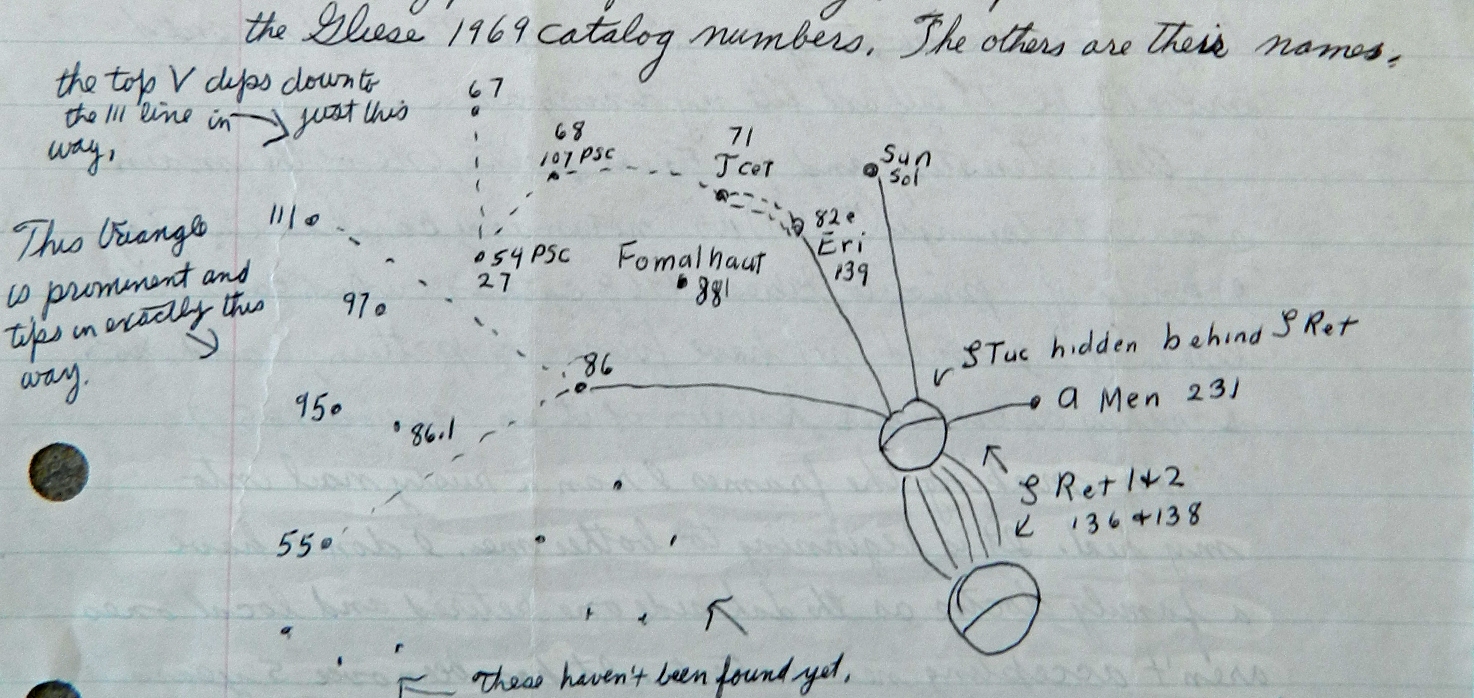 the Gliese 1969 catalog numbers. The others are their names.
the top V dips down to
the 111 line in → just this
way.
67
68
107 PSC
71
T Cet
Sun
Sol
82 e
Eri
139
111
This triangle
is prominent and
tips in exactly this
way.
54 PSC
27
Fomalhaut
881
97
86
ζ Tuc hidden behind ζ Ret
α Men 231
95
86.1
ζ Ret 1 & 2
136 + 138
55
These haven't been found yet.